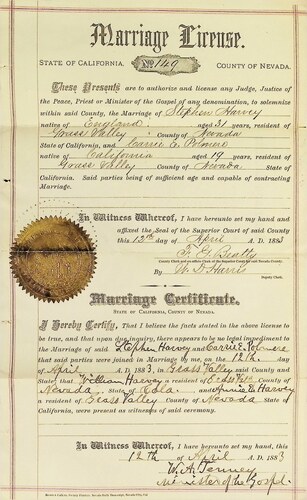 Marriage License.
STATE OF CALIFORNIA. No. 149 COUNTY OF NEVADA.
These Presents are to authorize and license any Judge, Justice of
the Peace, Priest or Minister of the Gospel of any denomination, to solemnize
within said County, the Marriage of Stephen Harvey
native of England aged 31 years, resident of
Grass Valley County of Nevada
State of California, and Carrie E.
native of California aged 19 years, resident of
Grass Valley County of Nevada State of
California. Said parties being of sufficient age and capable of contracting
Marriage.
In Witness Whereof, I have hereunto set my hand and
affixed the Seal of the Superior Court of said County
this 12th day of April A. D. 1883
County Clerk and ex-officio Clerk of the Superior Court for said Nevada County.
By W. D. Harris
Deputy Clerk.
Marriage Certificate.
STATE OF CALIFORNIA, COUNTY OF NEVADA.
I Hereby Certify, That I believe the facts stated in the above license
to be true, and that upon due inquiry, there appears to be no legal impediment to
the Marriage of said Stephen Harvey and Carrie E.
that said parties were joined in Marriage by me, on the 12th day
of April A. D. 1883, in Grass Valley said County and
State; that William Harvey a resident of Grass Valley County of
Nevada, State of and Annie E Harvey
a resident of Grass Valley County of Nevada State of
were present as witnesses of said ceremony.
In Witness Whereof, I have hereunto set my hand, this
12th of April A. D. 1883
W. A. Tenney
Minister of the Gospel.